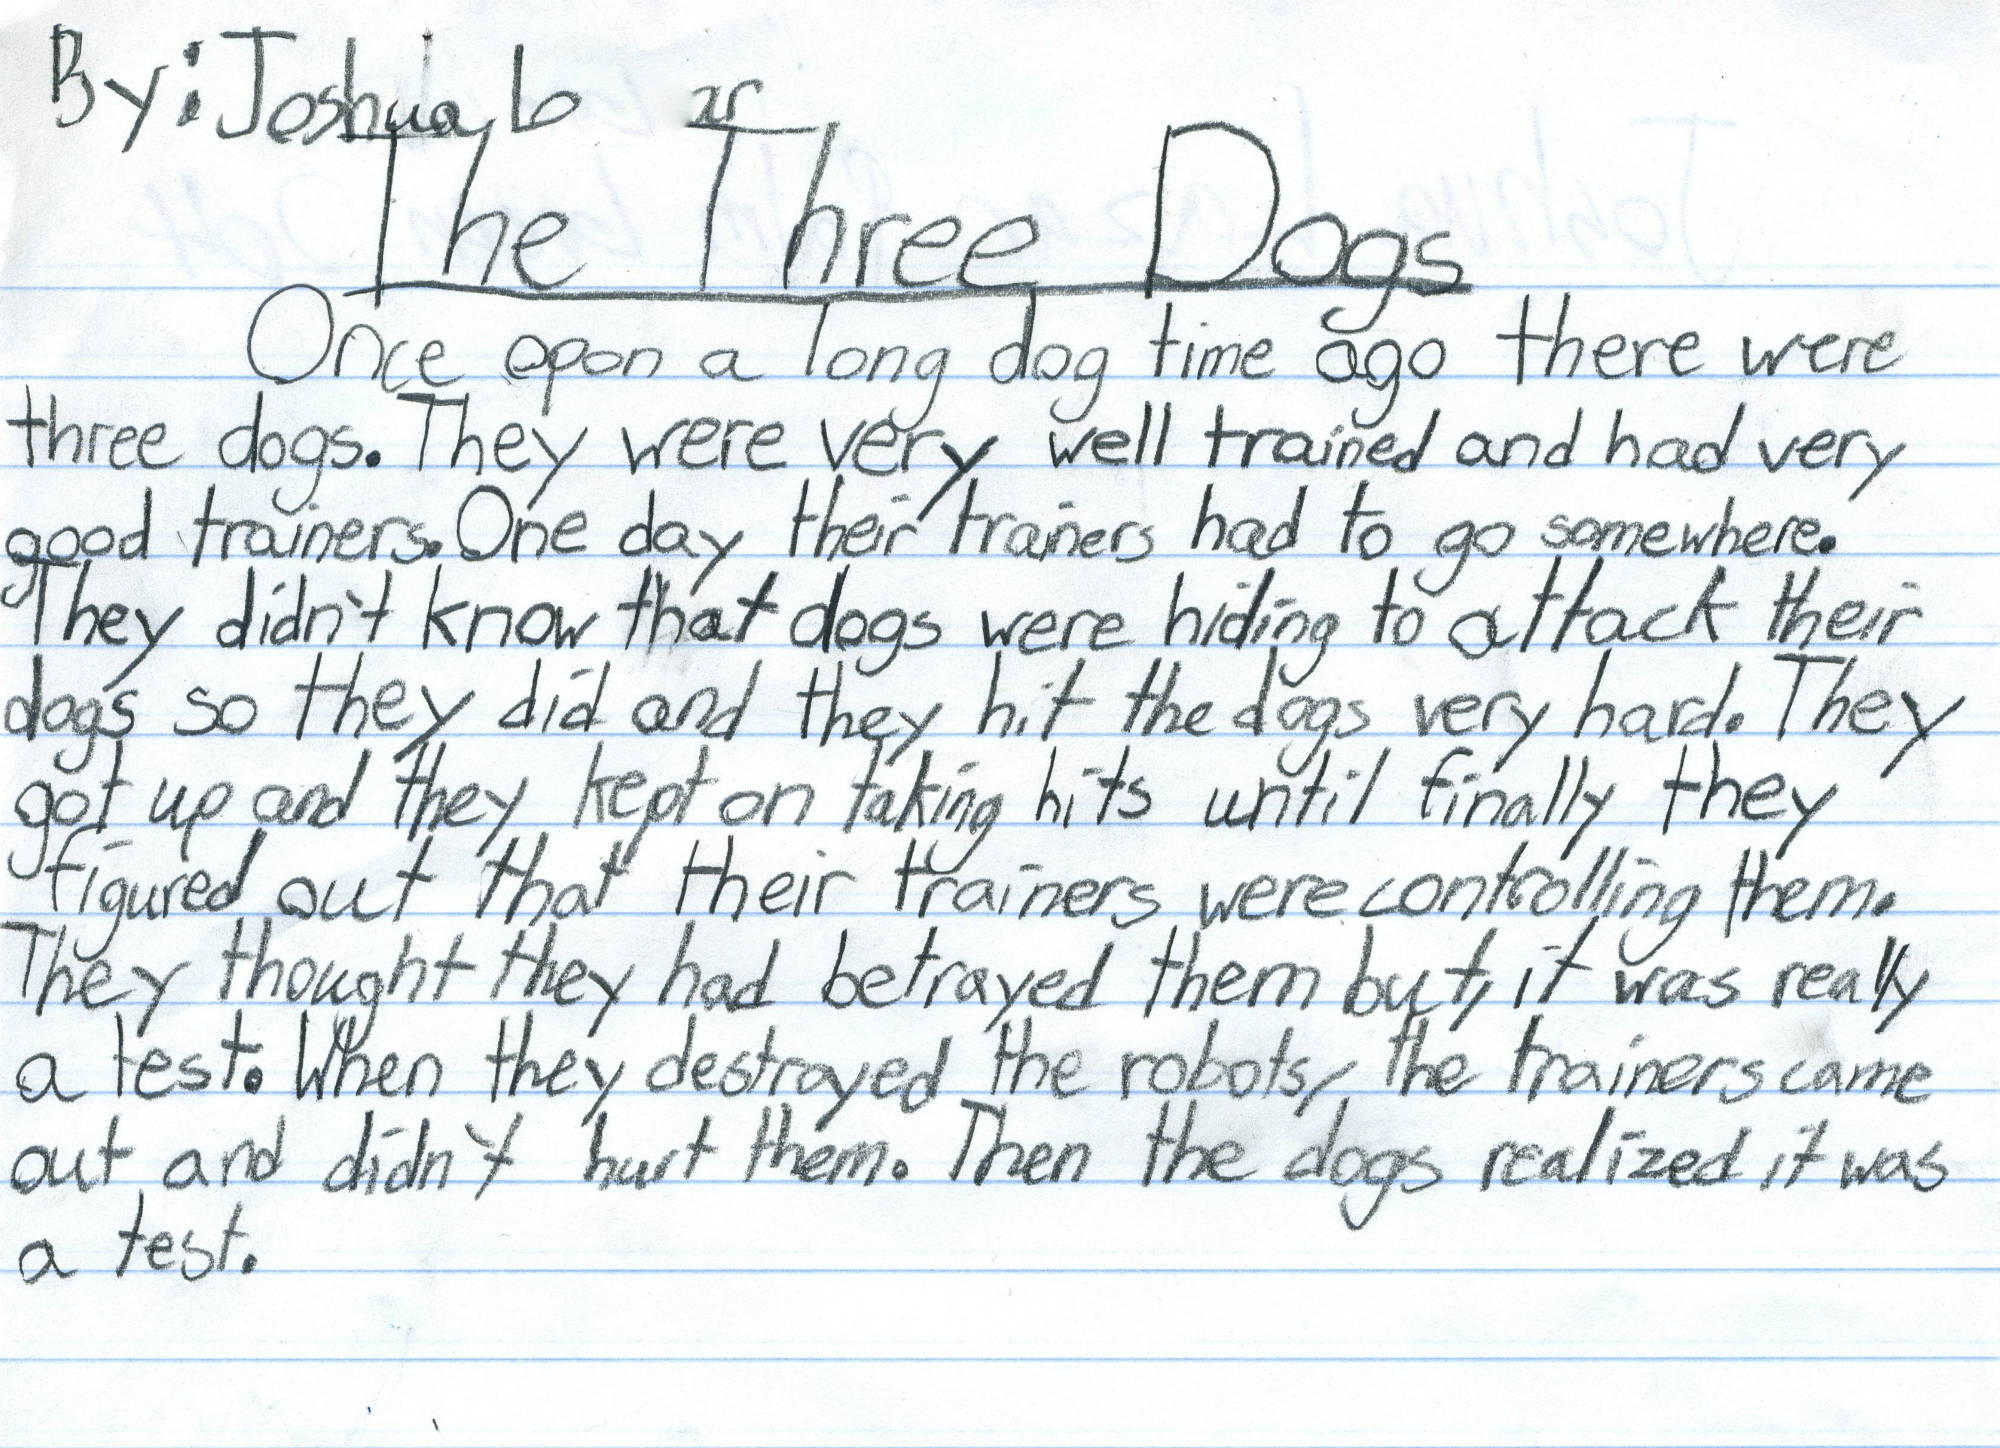 By: Joshua
The Three Dogs
Once opon a long dog time ago there were
three dogs. They were very well trained and had very
good trainers. One day their trainers had to go somewhere.
They didn't know that dogs were hiding to attack their
dogs so they did and they hit the dogs very hard. They
got up and they kept on taking hits until finally they
figured out that their trainers were controlling them.
They thought they had betrayed them but, it was really
a test. When they destroyed the robots, the trainers came
out and didn't hurt them. Then the dogs realized it was
a test.